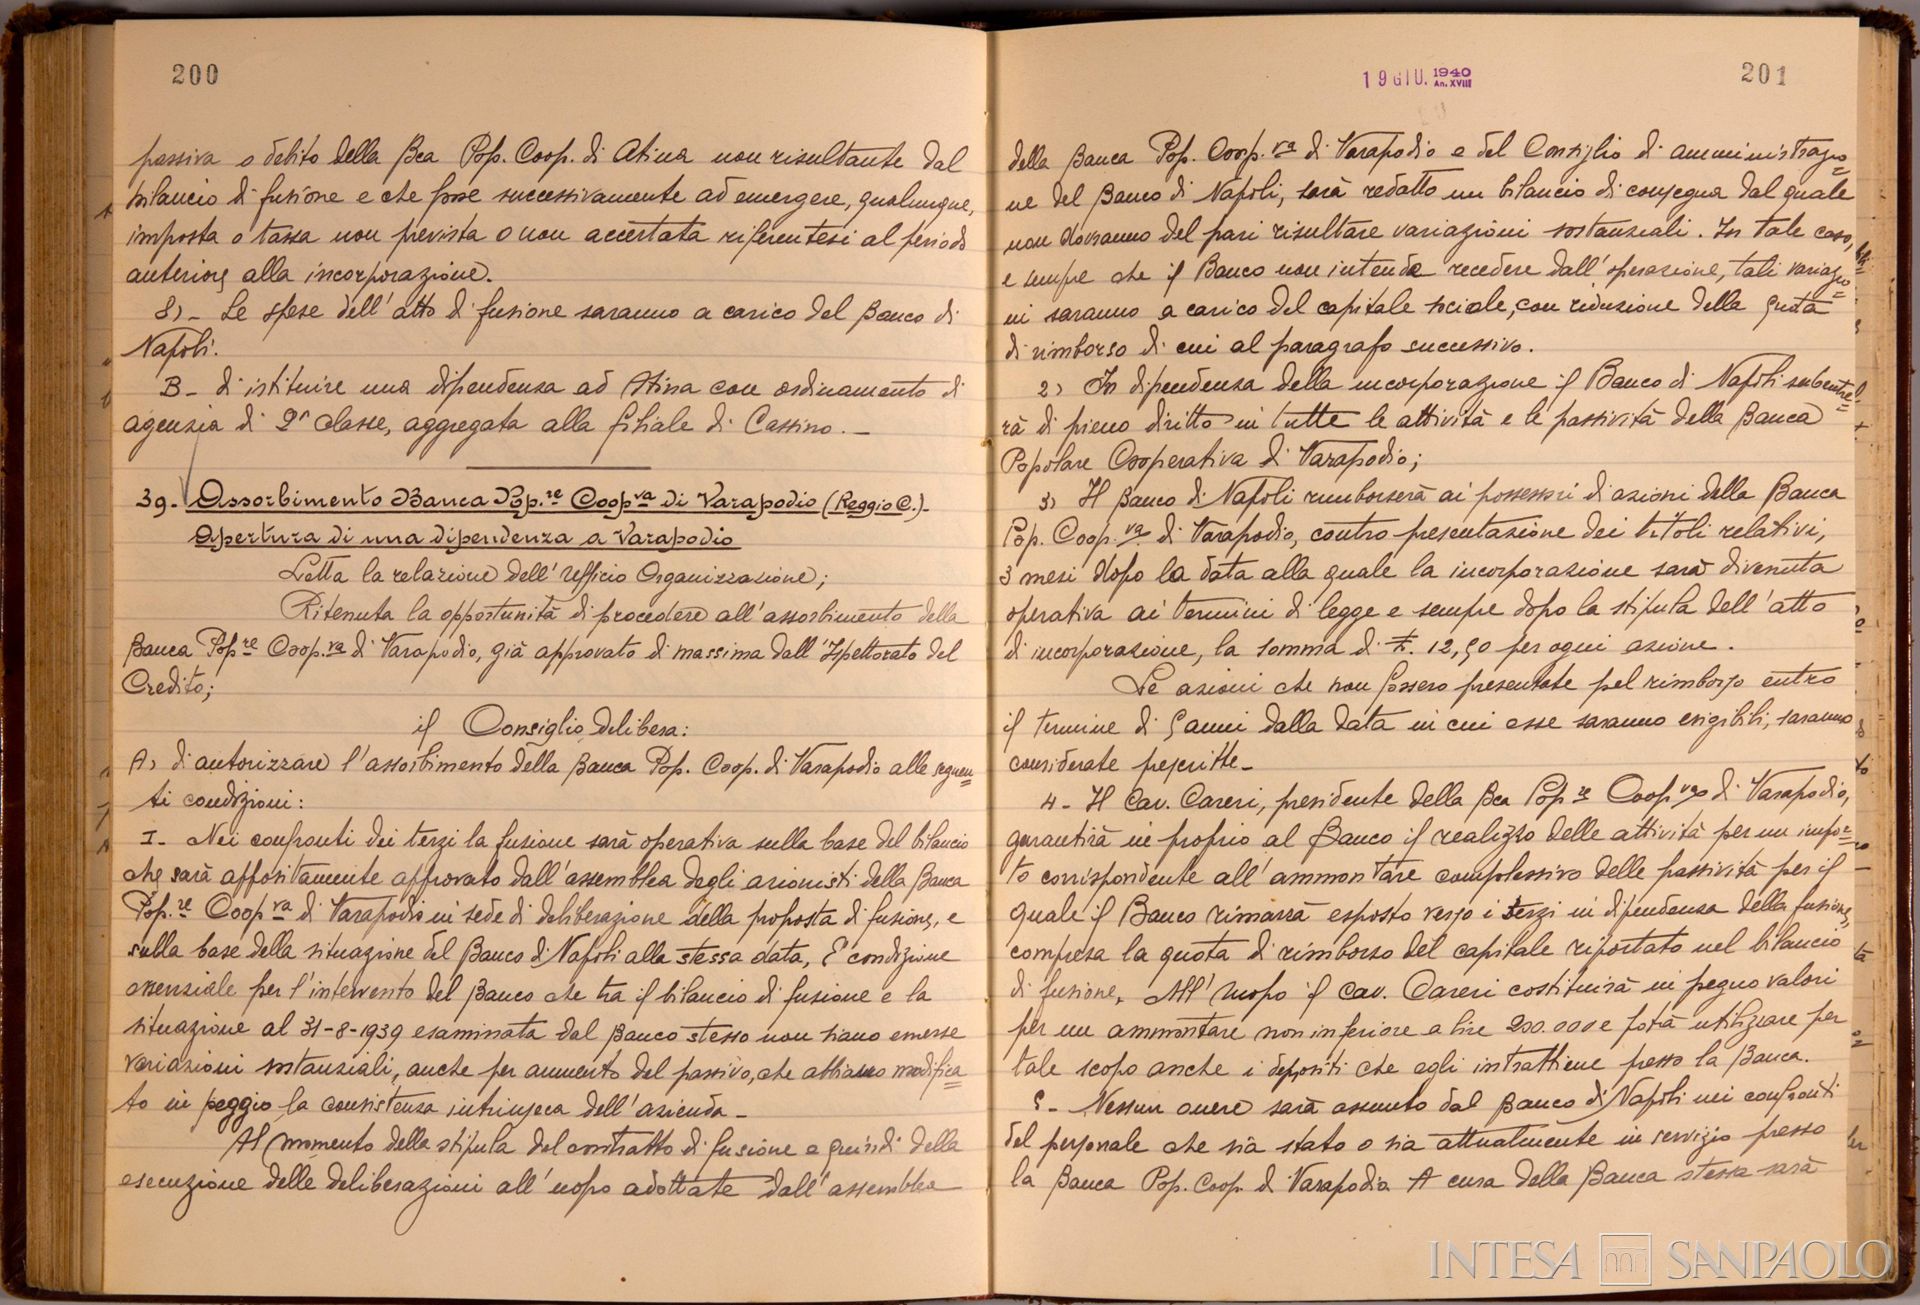 200
passiva o debito della Bca Pop. Coop. di Atina non risultante dal
bilancio di fusione e che fosse successivamente ad emergere, qualunque,
imposta o tassa non prevista o non accertata riferentesi al periodo
anteriore alla incorporazione.
8) - Le spese dell'atto di fusione saranno a carico del Banco di
Napoli.
B - di istituire una dipendenza ad Atina con ordinamento di
agenzia di 2ª classe, aggregata alla filiale di Cassino. -
39 - Assorbimento Banca Pop.re Coop.va di Varapodio (Reggio C.) -
Apertura di una dipendenza a Varapodio
Letta la relazione dell'Ufficio Organizzazione;
Ritenuta la opportunità di procedere all'assorbimento della
Banca Pop.re Coop.va di Varapodio, già approvato di massima dall'Ispettorato del
Credito;
il Consiglio delibera:
A) di autorizzare l'assorbimento della Banca Pop. Coop. di Varapodio alle seguen=
ti condizioni:
I - Nei confronti dei terzi la fusione sarà operativa sulla base del bilancio
che sarà appositamente approvato dall'assemblea degli azionisti della Banca
Pop.re Coop.va di Varapodio in sede di deliberazione della proposta di fusione, e
sulla base della situazione del Banco di Napoli alla stessa data. E' condizione
essenziale per l'intervento del Banco che tra il bilancio di fusione e la
situazione al 31-8-1939 esaminata dal Banco stesso non siano emerse
variazioni sostanziali, anche per aumento del passivo, che abbiano modifica=
to in peggio la consistenza intrinseca dell'azienda -
Al momento della stipula del contratto di fusione e quindi della
esecuzione delle deliberazioni all'uopo adottate dall'assemblea
19 GIU. 1940
An. XVIII
201
della Banca Pop. Coop.va di Varapodio e del Consiglio di amministrazio=
ne del Banco di Napoli, sarà redatto un bilancio di consegna dal quale
non dovranno del pari risultare variazioni sostanziali. In tale caso,
e sempre che il Banco non intenda recedere dall'operazione, tali variazio=
ni saranno a carico del capitale sociale, con riduzione della quota
di rimborso di cui al paragrafo successivo.
2) In dipendenza della incorporazione il Banco di Napoli subentre=
rà di pieno diritto in tutte le attività e le passività della Banca
Popolare Cooperativa di Varapodio;
3) Il Banco di Napoli rimborserà ai possessori di azioni della Banca
Pop. Coop.va di Varapodio, contro presentazione dei titoli relativi,
3 mesi dopo la data alla quale la incorporazione sarà divenuta
operativa ai termini di legge e sempre dopo la stipula dell'atto
di incorporazione, la somma di £. 12,50 per ogni azione.
Le azioni che non fossero presentate pel rimborso entro
il termine di 5 anni dalla data in cui esse saranno esigibili, saranno
considerate prescritte -
4 - Il Cav. Careri, presidente della Bca Pop.re Coop.va di Varapodio,
garantirà in proprio al Banco il realizzo delle attività per un impor=
to corrispondente all'ammontare complessivo delle passività per il
quale il Banco rimarrà esposto verso i terzi in dipendenza della fusione,
compresa la quota di rimborso del capitale riportato nel bilancio
di fusione. All'uopo il Cav. Careri costituirà in pegno valori
per un ammontare non inferiore a lire 200.000 e potrà utilizzare per
tale scopo anche i depositi che egli intrattiene presso la Banca.
5 - Nessun onere sarà assunto dal Banco di Napoli nei confronti
del personale che sia stato o sia attualmente in servizio presso
la Banca Pop. Coop. di Varapodio. A cura della Banca stessa sarà
INTESA SANPAOLO